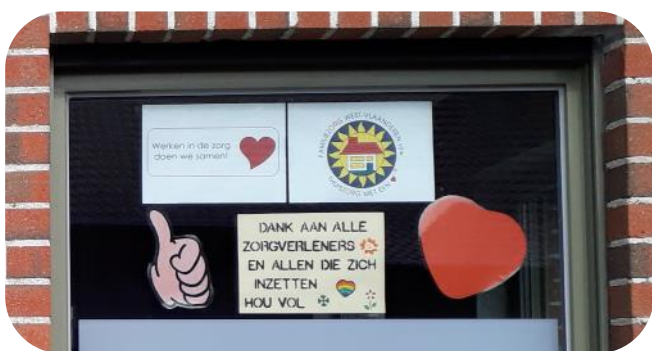 Werken in de zorg
doen we samen!
FAMILIEZORG WEST-VLAANDEREN vzw
THUISZORG MET EEN
DANK AAN ALLE
ZORGVERLENERS
EN ALLEN DIE ZICH
INZETTEN
HOU VOL